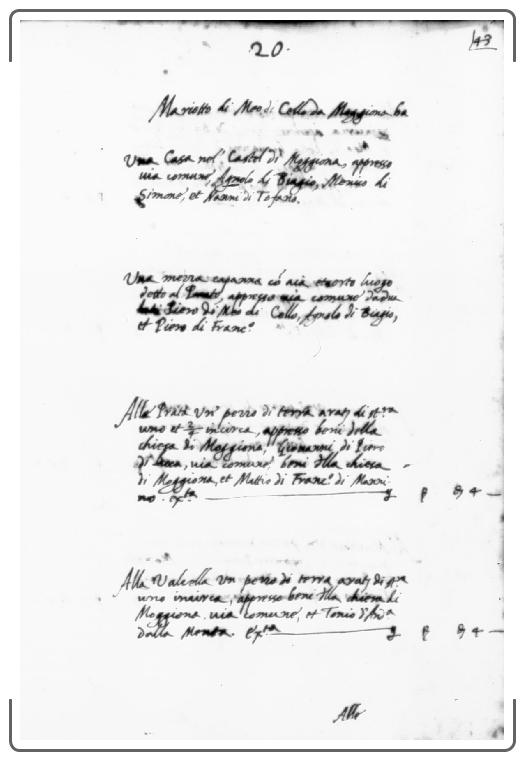 20.
43
Mariotto di Meo di Collo da Moggiona ha
Una Casa nel Castel di Moggiona, appresso
via comune, Agnolo di Biagio, Menico di
Simone, et Nanni di Tofano.
Una mezza capanna cõ aia et orto luogo
detto al Prato, appresso via comune da du
lati Piero di Meo di Collo, Agnolo di Biagio,
et Piero di Franc.º
Alla Prata Un pezzo di terra arat; di st.ra
uno et 2/3 incirca, appresso beni della
chiesa di Moggiona, Giovanni di Piero
di Luca, via comune, beni dlla chiesa
di Moggiona, et Mattio di Franc.º di Nanni
no. ex.ta
Alla Valcella Un pezzo di terra arat; di st.ra
uno incirca, appresso beni dlla chiesa di
Moggiona, via comune, et Tonio d'And.a
dalla Monta. ex.ta
Allo